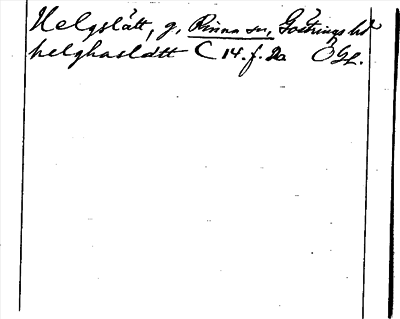 Helgslätt, g, Rinna sn, Göstrings hd
helghaslått C 14. f. 2a ÖGL.